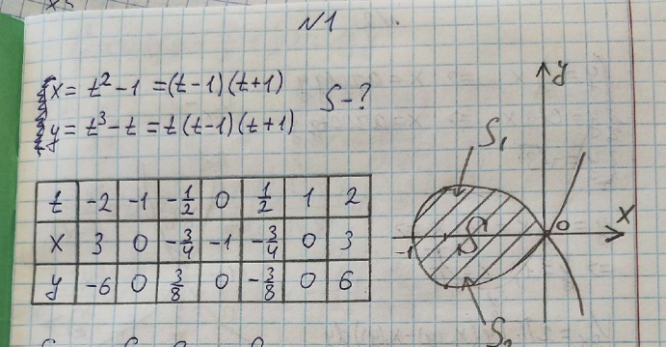 N1
x = t² - 1 = (t-1)(t+1)
y = t³ - t = t(t-1)(t+1)
S - ?
t -2 -1 -1/2 0 1/2 1 2
x 3 0 -3/4 -1 -3/4 0 3
y -6 0 3/8 0 -3/8 0 6
y
S₁
x
0
-1
S
S₂